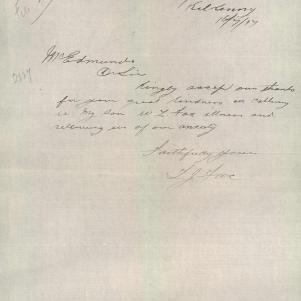 Kilkenny
16/7/17
Mr Edmunds
D Sir
Kingly accept our thanks
for your great kindness in calling
in my son W L Fox illness and
relieving us of our anxiety
Faithfully yours
T J Fox